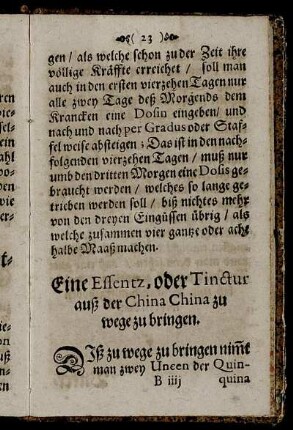 ( 23 )
gen / als welche schon zu der Zeit ihre
völlige Kräffte erreichet / soll man
auch in den ersten vierzehen Tagen nur
alle zwey Tage deß Morgends dem
Krancken eine Dosin eingeben / und
nach und nach per Gradus oder Staf-
fel weise absteigen; Das ist in den nach-
folgenden vierzehen Tagen / muß nur
umb den dritten Morgen eine Dosis ge-
braucht werden / welches so lange ge-
trieben werden soll / biß nichtes mehr
von den dreyen Eingüssen übrig / als
welche zusammen vier gantze oder acht
halbe Maaß machen.
Eine Essentz, oder Tinctur
auß der China China zu
wege zu bringen.
Diß zu wege zu bringen nim̃t
man zwey Uncen der Quin-
B iiij quina